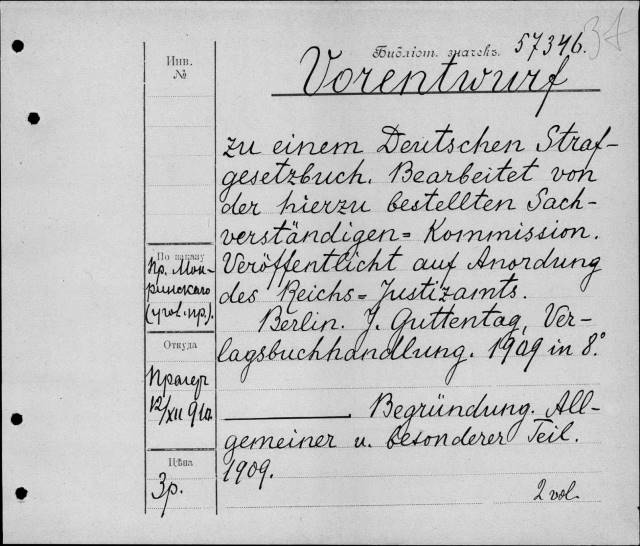 Библіот. значекъ. 57346.
Инв.
№
Vorentwurf
zu einem Deutschen Straf-
gesetzbuch. Bearbeitet von
der hierzu bestellten Sach-
verständigen= Kommission.
Veröffentlicht auf Anordnung
des Reichs=Justizamts.
Berlin. J. Guttentag, Ver-
lagsbuchhandlung. 1909 in 8°
Begründung. All-
gemeiner u. besonderer Teil.
1909.
2 vol.
По заказу
пр.
(угол. пр.).
Откуда
Прагер
12/XII
Цѣна
3р.